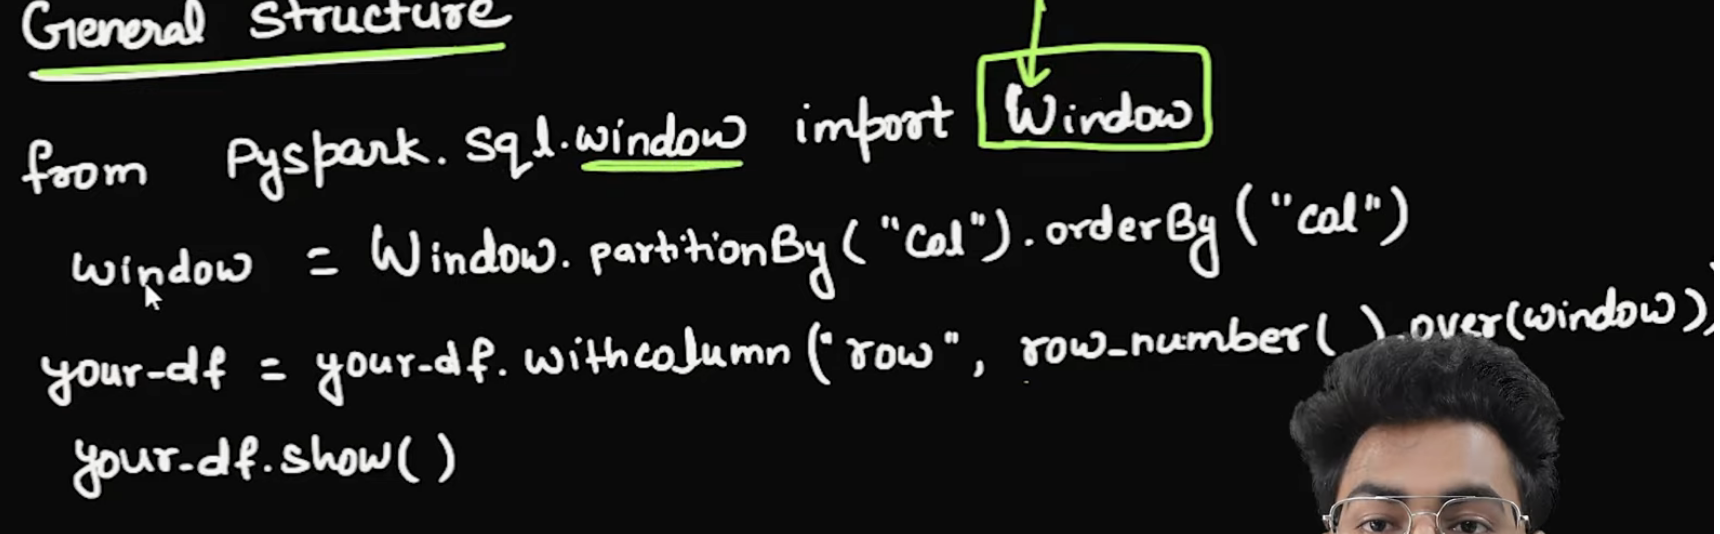 General Structure
from Pyspark.sql.window import Window
window = Window.partitionBy("Col").orderBy("col")
your-df = your-df.withcolumn("row", row-number().over(window))
your-df.show()